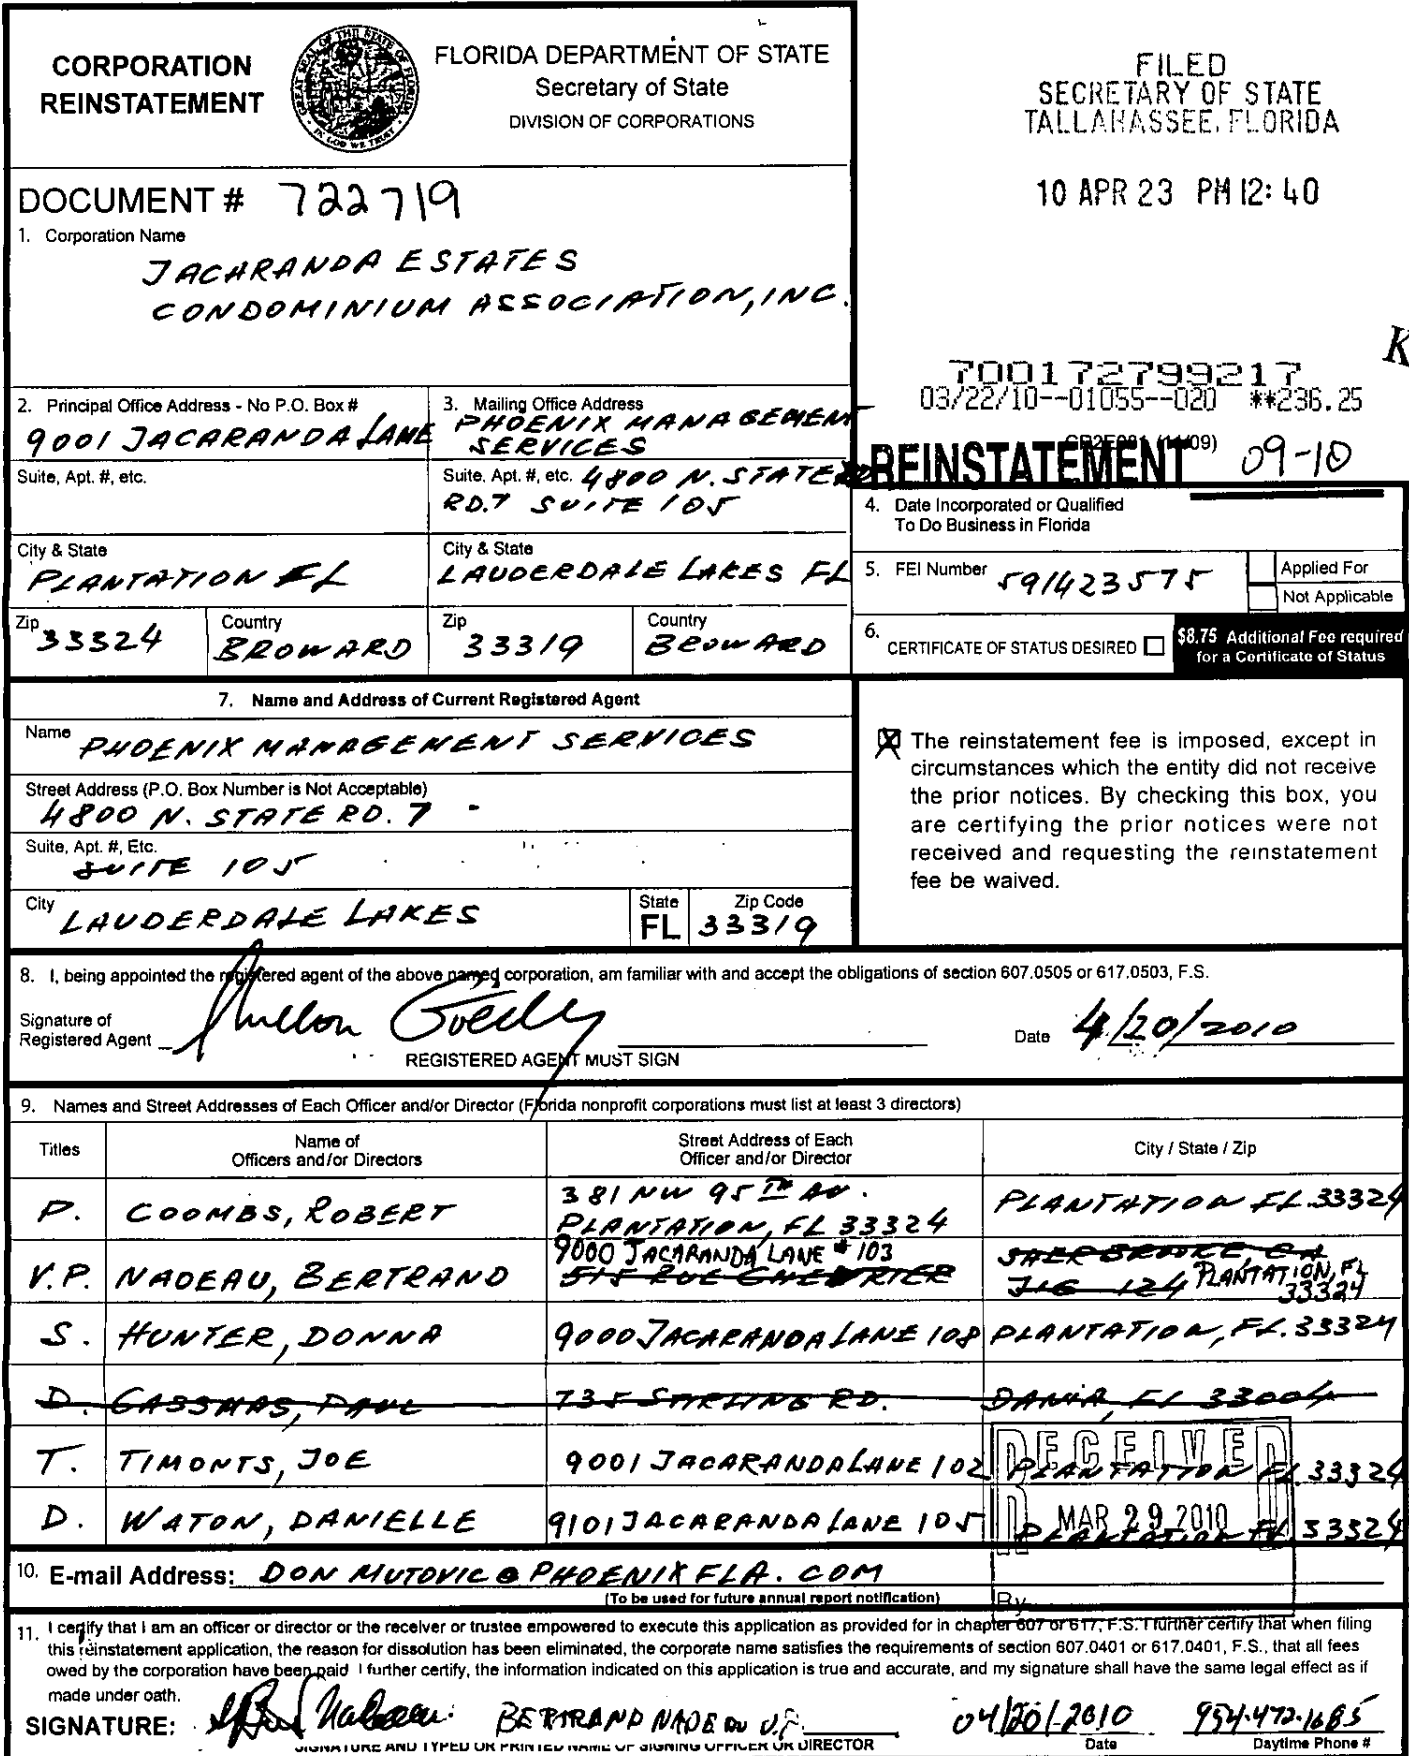 CORPORATION
REINSTATEMENT
FLORIDA DEPARTMENT OF STATE
Secretary of State
DIVISION OF CORPORATIONS
FILED
SECRETARY OF STATE
TALLAHASSEE, FLORIDA
10 APR 23 PM 12: 40
DOCUMENT # 722719
1. Corporation Name
JACARANDA ESTATES
CONDOMINIUM ASSOCIATION, INC.
K
700172799217
03/22/10--01055--020 **236.25
REINSTATEMENT 09-10
2. Principal Office Address - No P.O. Box #
9001 JACARANDA LANE
3. Mailing Office Address
PHOENIX MANAGEMENT
SERVICES
Suite, Apt. #, etc.
Suite, Apt. #, etc. 4800 N. STATE
RD.7 SUITE 105
City & State
PLANTATION FL
City & State
LAUDERDALE LAKES FL
Zip 33324
Country BROWARD
Zip 33319
Country BROWARD
4. Date Incorporated or Qualified
To Do Business in Florida
5. FEI Number 591423575
Applied For
Not Applicable
6. CERTIFICATE OF STATUS DESIRED
$8.75 Additional Fee required
for a Certificate of Status
7. Name and Address of Current Registered Agent
Name PHOENIX MANAGEMENT SERVICES
Street Address (P.O. Box Number is Not Acceptable)
4800 N. STATE RD. 7
Suite, Apt. #, Etc.
SUITE 105
City LAUDERDALE LAKES
State FL
Zip Code 33319
X The reinstatement fee is imposed, except in
circumstances which the entity did not receive
the prior notices. By checking this box, you
are certifying the prior notices were not
received and requesting the reinstatement
fee be waived.
8. I, being appointed the registered agent of the above named corporation, am familiar with and accept the obligations of section 607.0505 or 617.0503, F.S.
Signature of
Registered Agent
REGISTERED AGENT MUST SIGN
Date 4/20/2010
9. Names and Street Addresses of Each Officer and/or Director (Florida nonprofit corporations must list at least 3 directors)
Titles
Name of
Officers and/or Directors
Street Address of Each
Officer and/or Director
City / State / Zip
P. COOMBS, ROBERT
381 NW 95TH AV.
PLANTATION, FL 33324
PLANTATION FL. 33324
V.P. NADEAU, BERTRAND
9000 JACARANDA LANE #103
515 RUE
PLANTATION, FL
33324
S. HUNTER, DONNA 9000 JACARANDA LANE 108 PLANTATION, FL. 33324
D. PAUL 735 STARLING RD. DANIA, FL 33004
T. TIMONTS, JOE 9001 JACARANDA LANE 102 PLANTATION FL 33324
D. WATON, DANIELLE 9101 JACARANDA LANE 105 PLANTATION FL. 33324
RECEIVED
MAR 29 2010
By
10. E-mail Address: DON MUTOVIC@PHOENIXFLA.COM
(To be used for future annual report notification)
11. I certify that I am an officer or director or the receiver or trustee empowered to execute this application as provided for in chapter 607 or 617, F.S. I further certify that when filing
this reinstatement application, the reason for dissolution has been eliminated, the corporate name satisfies the requirements of section 607.0401 or 617.0401, F.S., that all fees
owed by the corporation have been paid I further certify, the information indicated on this application is true and accurate, and my signature shall have the same legal effect as if
made under oath.
SIGNATURE: BERTRAND NADEAU V.P. 04/20/2010 954.472.1685
SIGNATURE AND TYPED OR PRINTED NAME OF SIGNING OFFICER OR DIRECTOR
Date
Daytime Phone #